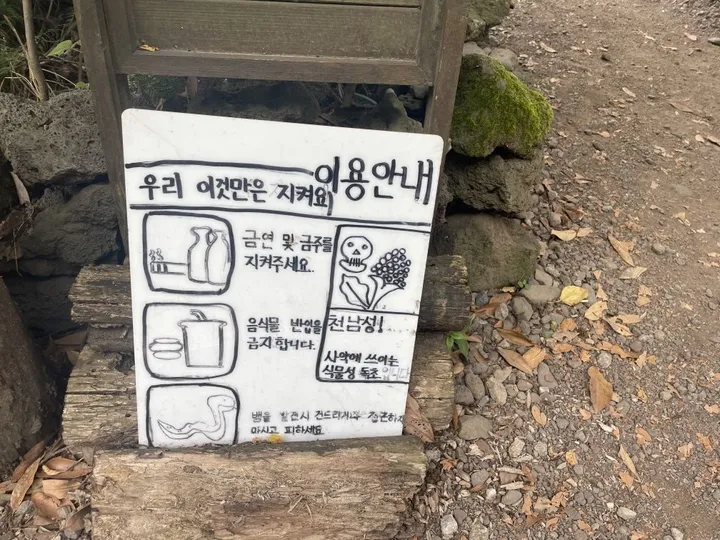 이용안내
우리 이것만은 지켜요
금연 및 금주를
지켜주세요.
음식물 반입을
금지합니다.
천남성!
사약에 쓰이는
식물성 독초 입니다
뱀을 발견시 건드리거나 접근하지
마시고 피하세요.